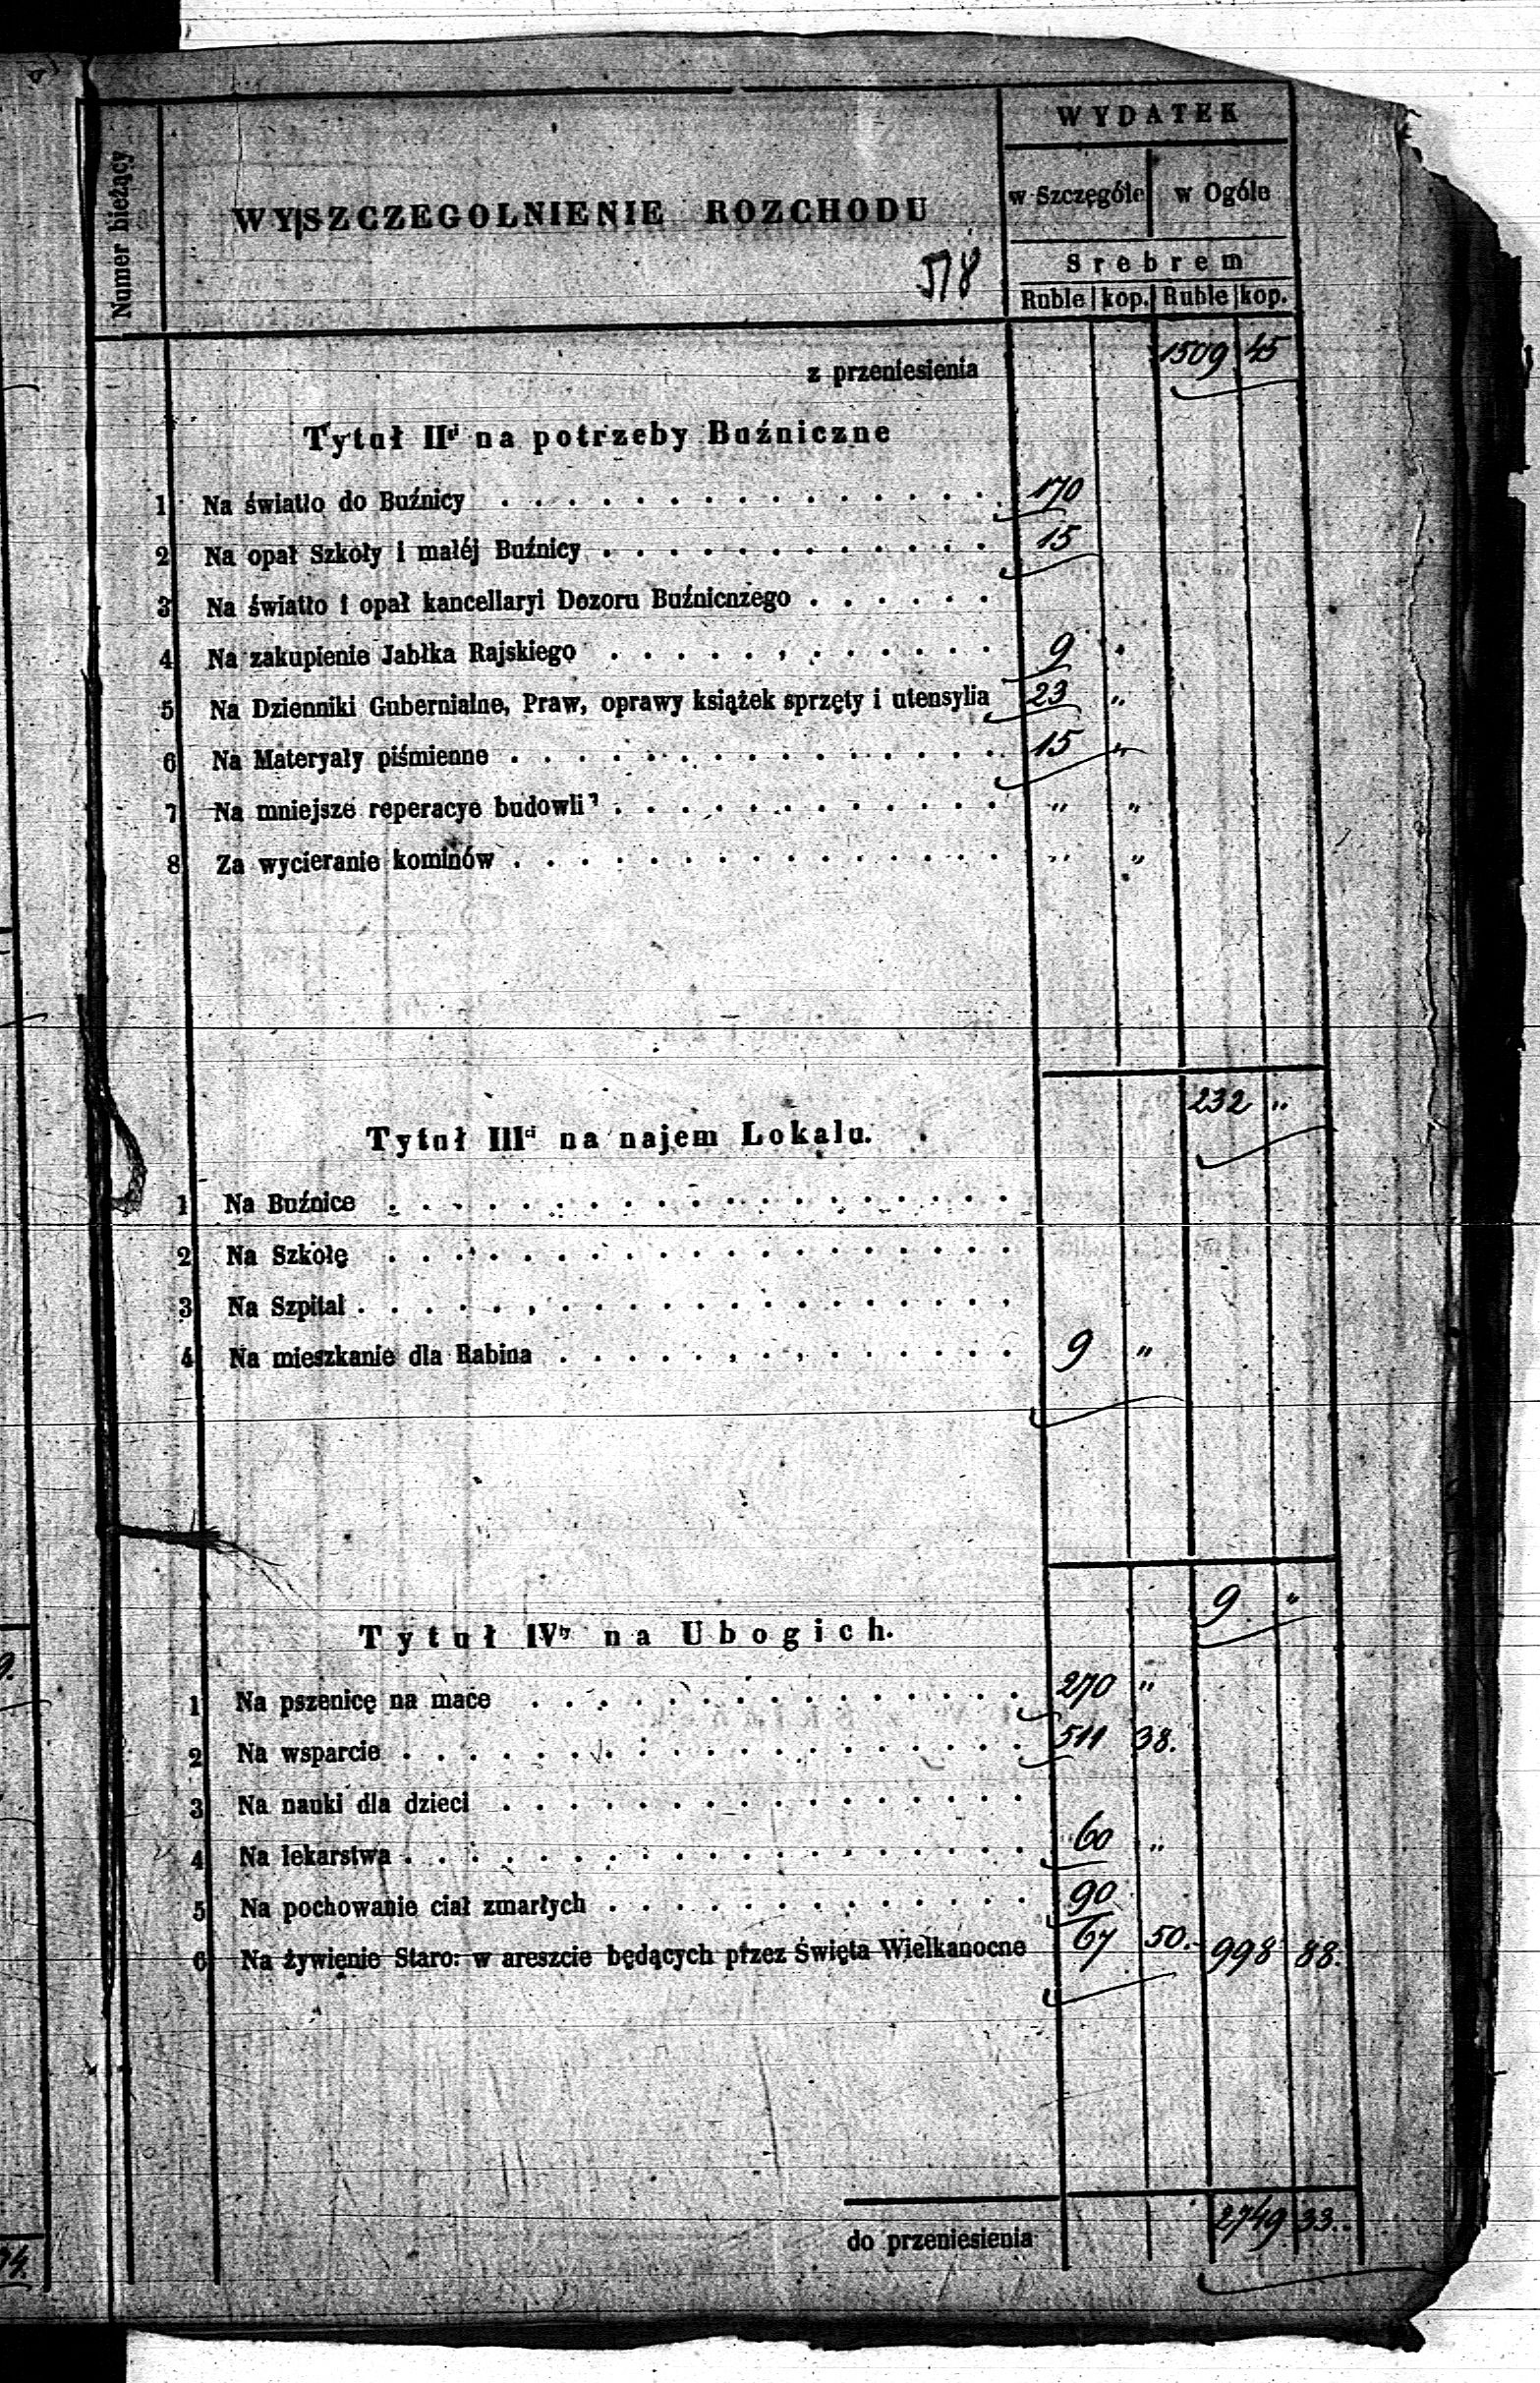 Numer bieżący
WYSZCZEGOLNIENIE ROZCHODU
WYDATEK
w Szczególe w Ogóle
Srebrem
Ruble kop. Ruble kop.
578
z przeniesienia 1509 45
Tytuł IIgi na potrzeby Buźniczne
1 Na światło do Buźnicy 170
2 Na opał Szkoły i małéj Buźnicy 15
3 Na światło i opał kancellaryi Dozoru Buźnicnżego
4 Na zakupienie Jabłka Rajskiego 9 "
5 Na Dzienniki Gubernialne, Praw, oprawy książek sprzęty i utensylia 23 "
6 Na Materyały piśmienne 15 "
7 Na mniejsze reperacye budowli " "
8 Za wycieranie kominów " "
232 "
Tytuł IIIci na najem Lokalu.
1 Na Buźnice
2 Na Szkołę
3 Na Szpital
4 Na mieszkanie dla Rabina 9 "
9 "
Tytuł IVty na Ubogich.
1 Na pszenicę na mace 270 "
2 Na wsparcie 511 38.
3 Na nauki dla dzieci
4 Na lekarstwa 60 "
5 Na pochowanie ciał zmarłych 90
6 Na żywienie Staro: w areszcie będących przez Święta Wielkanocne 67 50. 998 88.
do przeniesienia 2749 33.